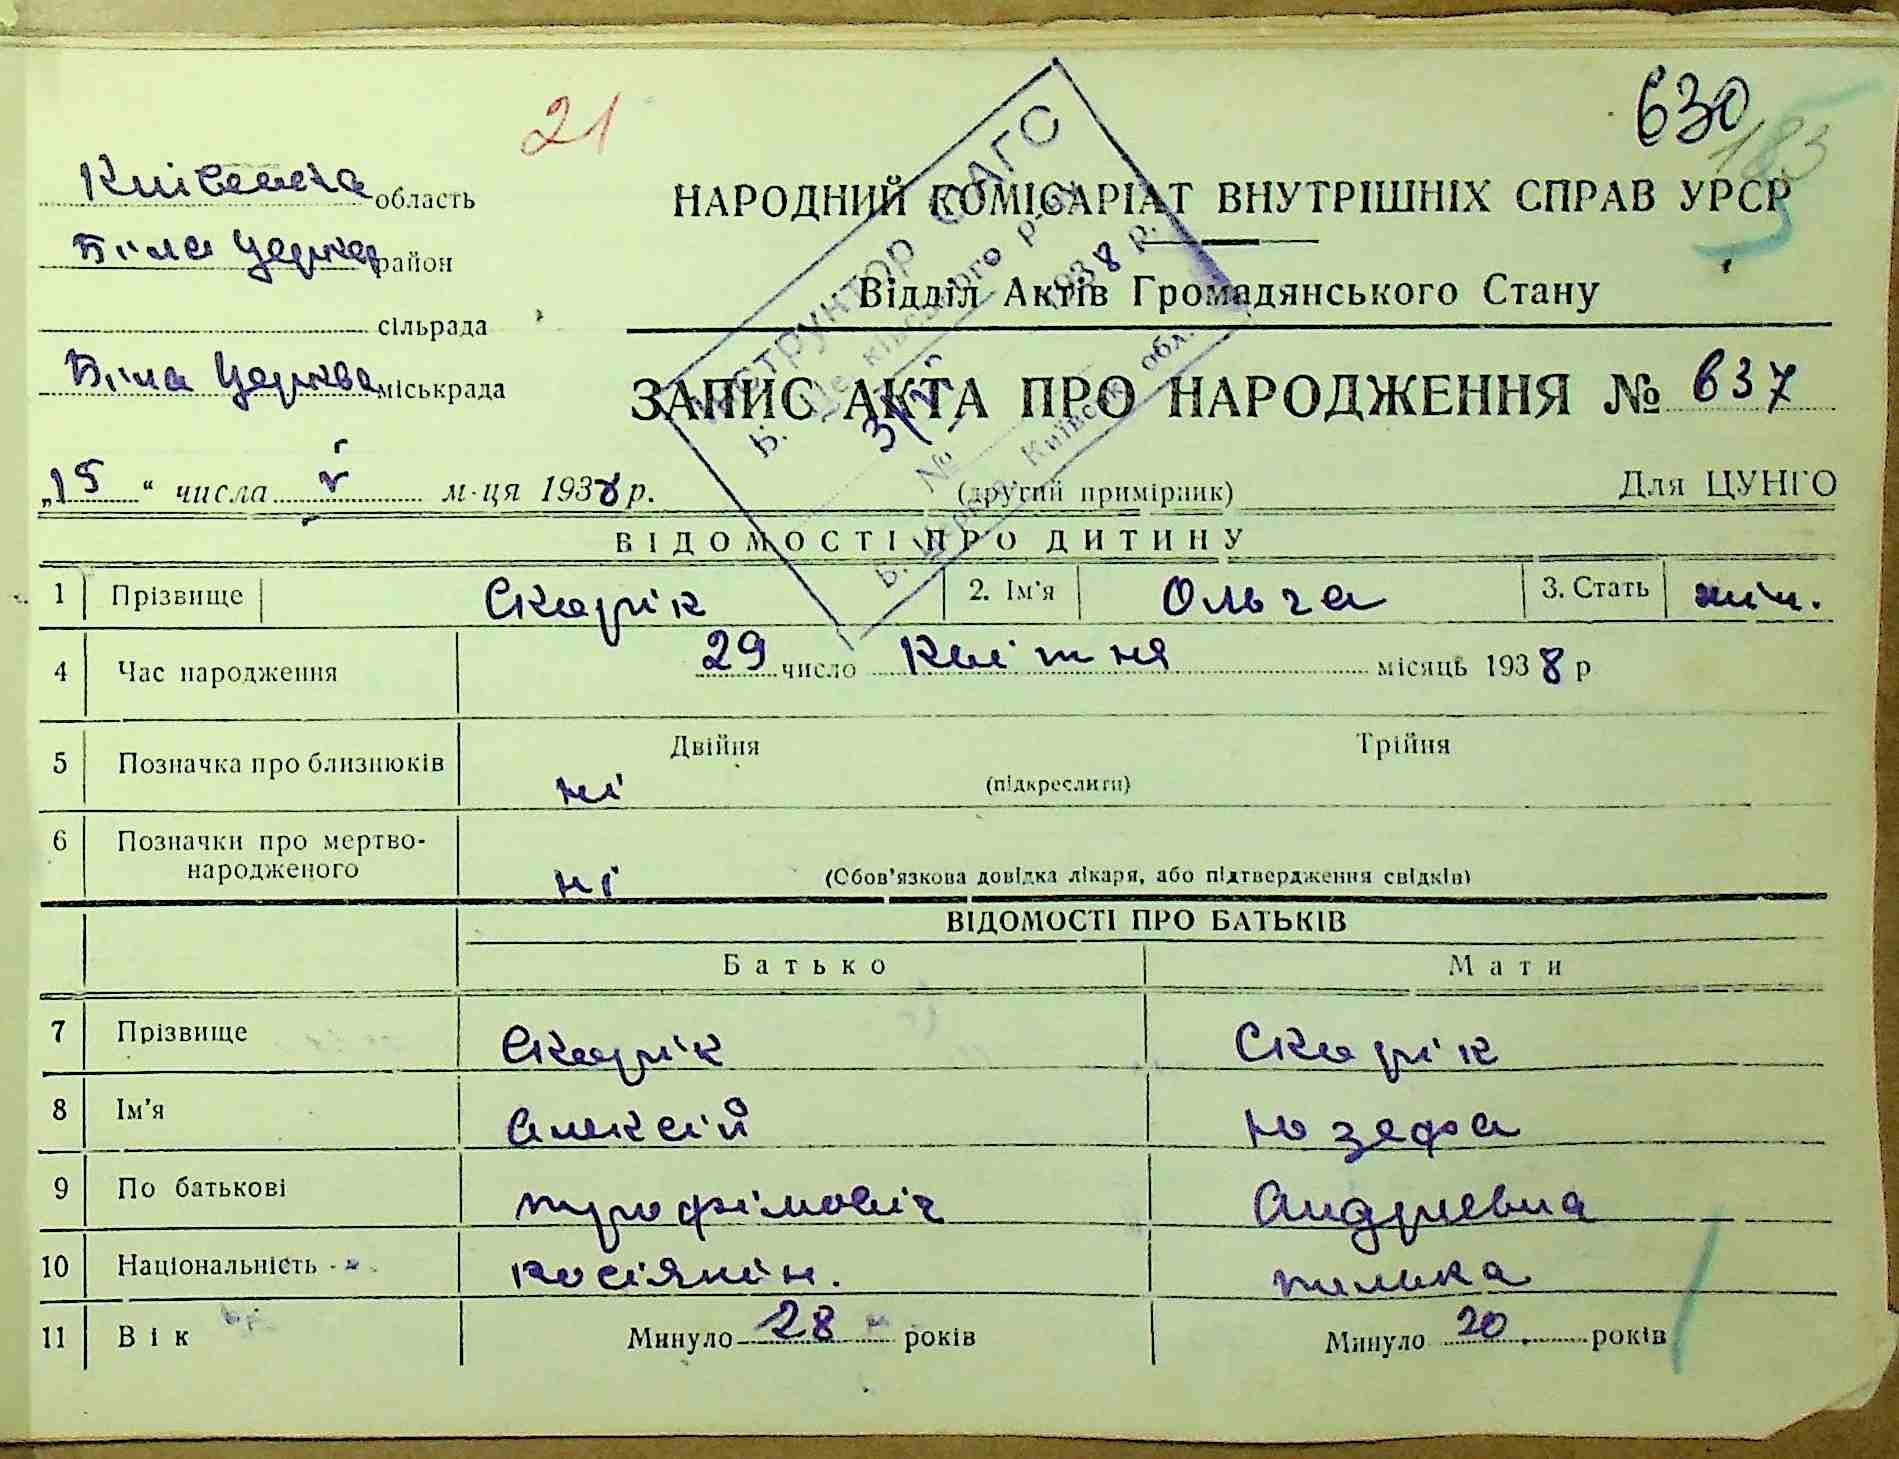 630
21
183
Київська область
Біла Церква район
сільрада
Біла Церква міськрада
НАРОДНИЙ КОМІСАРІАТ ВНУТРІШНІХ СПРАВ УРСР
Відділ Актів Громадянського Стану
ЗАПИС АКТА ПРО НАРОДЖЕННЯ № 637
"15" числа V м-ця 1938 р.
(другий примірник)
Для ЦУНГО
Інструктор ВАГС
Б. Церківського р-ну
1938 р.
№
Б. Церква, Київськ. обл.
ВІДОМОСТІ ПРО ДИТИНУ
1 Прізвище Скарік 2. Ім'я Ольга 3. Стать жін.
4 Час народження 29 число Квітня місяць 1938 р
5 Позначка про близнюків ні Двійня Трійня
(підкреслити)
6 Позначки про мертво-
народженого ні (Обов'язкова довідка лікаря, або підтвердження свідків)
ВІДОМОСТІ ПРО БАТЬКІВ
Батько Мати
7 Прізвище Скарік Скарік
8 Ім'я Алексій Юзефа
9 По батькові Трофімовіч Андріевна
10 Національність росіянін. полька
11 Вік Минуло 28 років Минуло 20 років